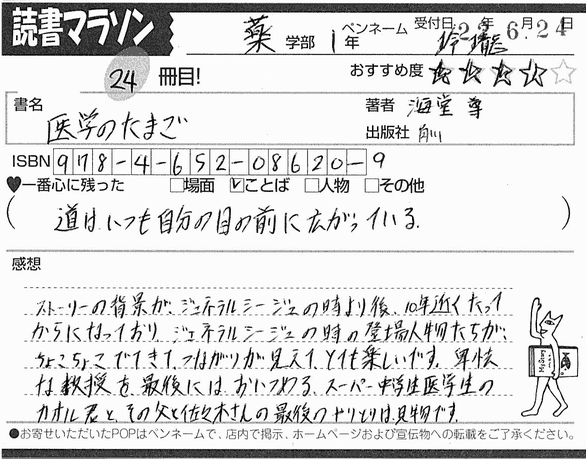 読書マラソン 薬 学部 1年 ペンネーム 玲瓏 受付日: 23年6月24日
24 冊目! おすすめ度 ★★★★☆
書名 医学のたまご
著者 海堂 尊
出版社
ISBN 978-4-652-08620-9
♥一番心に残った □場面 ☑ことば □人物 □その他
(道はいつも自分の目の前に広がっている。)
感想
ストーリーの背景が、ジェネラルシージュの時より後、10年近くたって
からになっており、ジェネラルシージュの時の登場人物たちが、
ちょこちょこでてきて、つながりが見えて、とても楽しいです。卑怯
な教授を最後にはおいつめる、スーパー中学生医学生の
カオル君と、その父と佐々木さんの最後のやりとりは見物です。
●お寄せいただいたPOPはペンネームで、店内で掲示、ホームページおよび宣伝物への転載をご了承ください。